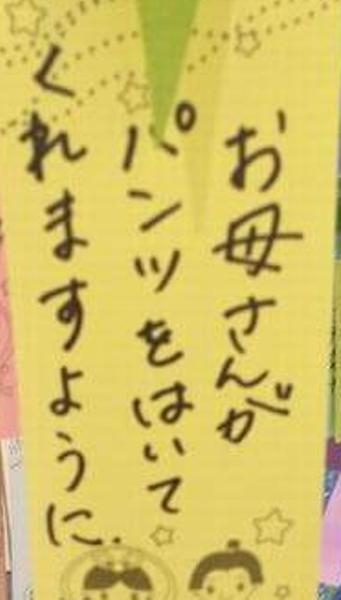 お母さんが
パンツをはいて
くれますように.